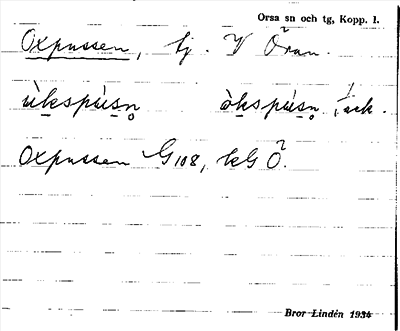 Orsa sn och tg, Kopp. l.
Oxpussen, tj. V Öran.
ùkspúsn̥ òkspúsn̥, ack.
Oxpussen G108, kG Ö.
Bror Lindén 1934